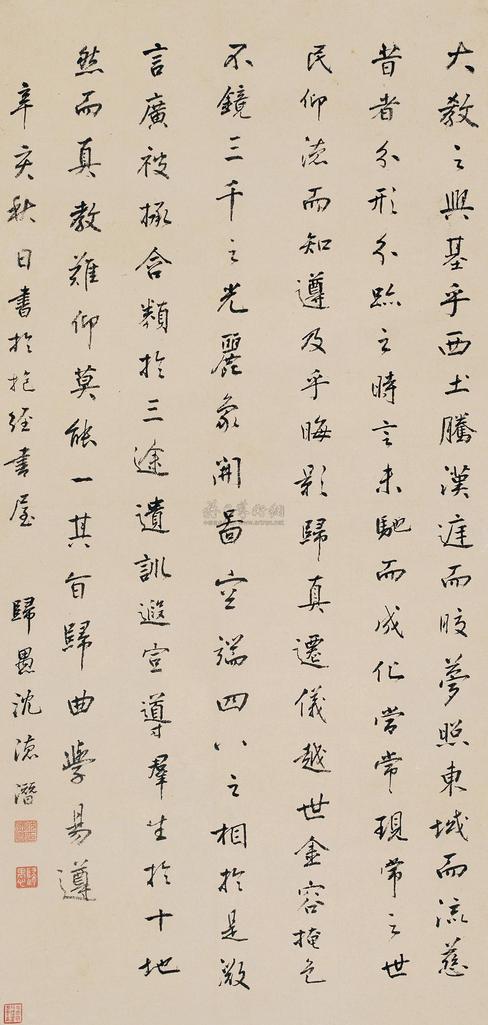 大教之興基乎西土騰漢庭而皎夢照東域而流慈
昔者分形分跡之時言未馳而成化當常現常之世
民仰德而知遵及乎晦影歸真遷儀越世金容掩色
不鏡三千之光麗象開圖空端四八之相於是微
言廣被拯含類於三途遺訓遐宣導群生於十地
然而真教難仰莫能一其旨歸曲學易遵
辛亥秋日書於抱經書屋 歸愚沈德潛